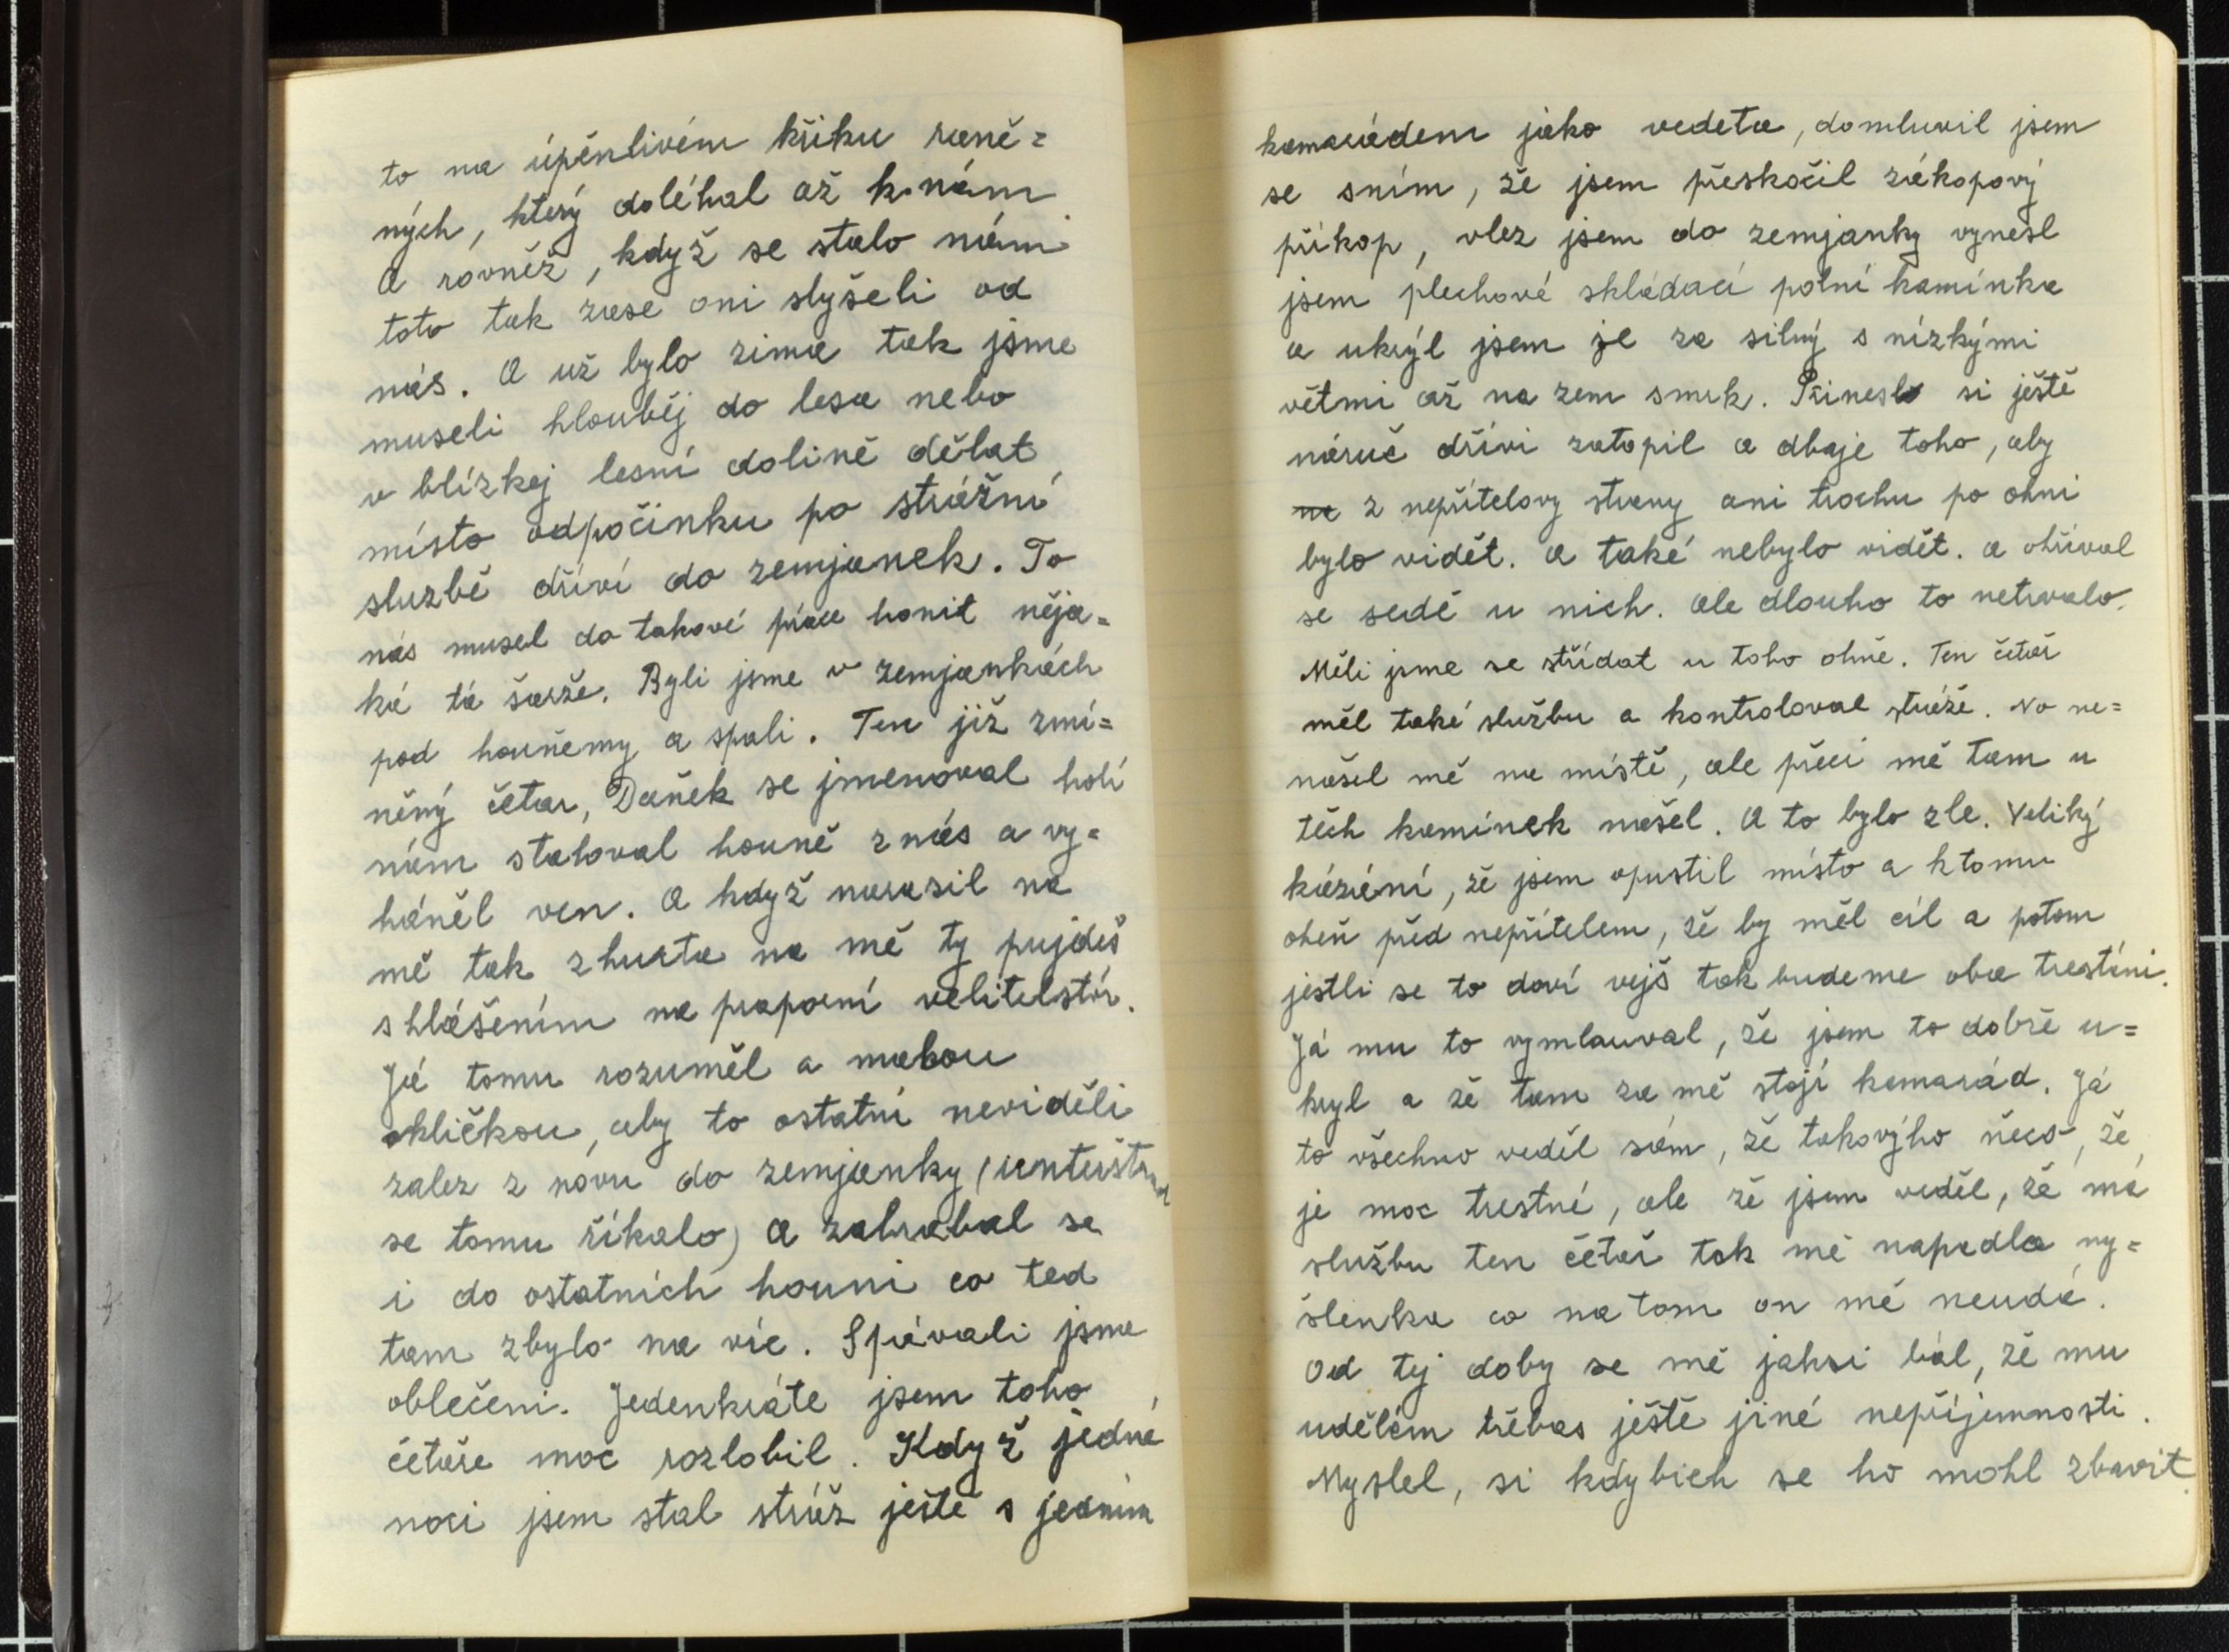 to na úpěnlivém křiku raně=
ných, který doléhal až k nám
A rovněž, když se stalo nám
toto tak zase oni slyšeli od
nás. A už bylo zima tak jsme
museli hlouběj do lesa nebo
v blízkej lesní dolině dělat
místo odpočinku po strážní
sluzbě dříví do zemjanek. To
nás musel do takové práce honit něja=
ká tá šarže. Byli jsme v zemjankách
pod houňemy a spali. Ten již zmí=
něný četar, Daněk se jmenoval holí
nám stahoval houně z nás a vy=
háněl ven. A když narazil na
mě tak zhurta na mě ty pujdeš
s hlášením na praporní velitelstv.
Já tomu rozuměl a malou
okličkou, aby to ostatní neviděli
zalez z novu do zemjanky (untuštand
se tomu říkalo) a zahrabal se
i do ostatních houni co ted
tam zbylo na víc. Spávali jsme
oblečeni. Jedenkráte jsem toho
četaře moc rozlobil. Když jedné
noci jsem stal stráž ještě s jedním
kamarádem jako vedeta, domluvil jsem
se sním, že jsem přeskočil zákopový
příkop, vlez jsem do zemjanky vynesl
jsem plechové skládací polní kamínka
a ukryl jsem je za silný s nízkými
větmi až na zem smrk. Přinesl si ještě
náruč dříví zatopil a dbaje toho, aby
na z nepřítelovy strany ani trochu po ohni
bylo vidět. a také nebylo vidět. a ohříval
se sedě u nich. ale dlouho to netrvalo.
Měli jsme se střídat u toho ohně. Ten četař
měl také službu a kontroloval stráže. No ne=
našel mě na místě, ale přeci mě tam u
těch kamínek našel. A to bylo zle. Veliký
kázání, že jsem opustil místo a k tomu
oheň před nepřítelem, že by měl cíl a potom
jestli se to doví vejš tak budeme oba trestáni.
Já mu to vymlauval, že jsem to dobře u=
kryl a že tam za mě stojí kamarád. Já
to všechno veděl sám, že takovýho něco, že
je moc trestné, ale že jsem veděl, že má
službu ten četař tak mě napadla my=
šlenka co na tom on mě neudá.
Od tej doby se mě jaksi bál, že mu
udělám třebas ještě jiné nepříjemnosti.
Myslel, si kdybich se ho mohl zbavit.